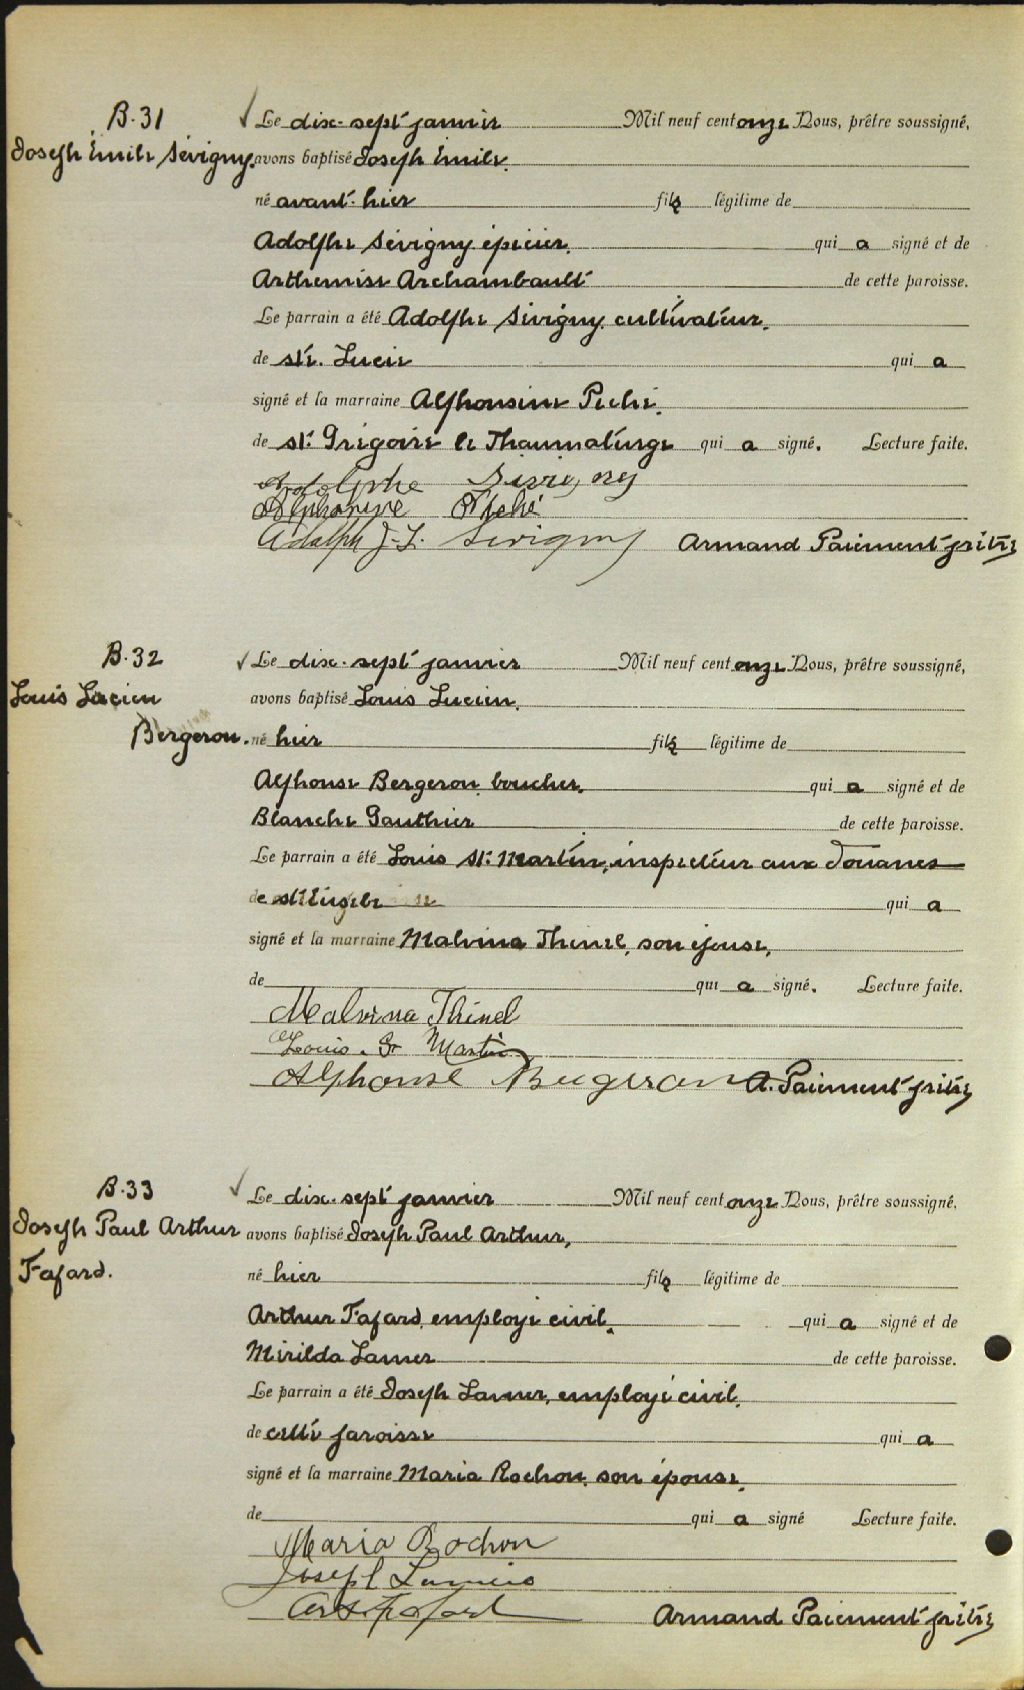 B.31
Joseph Émile Sévigny.
Le dix-sept janvier Mil neuf cent onze Nous, prêtre soussigné,
avons baptisé Joseph Emile.
né avant-hier fils légitime de
Adolphe Sévigny épicier. qui a signé et de
Arthemise Archambault de cette paroisse.
Le parrain a été Adolphe Sévigny, cultivateur,
de ste. Lucie qui a
signé et la marraine Alphonsine Piché.
de st. Grégoire le Thaumaturge qui a signé. Lecture faite.
Adolphe Sévigny
Alphonsine Piché
Adolph J-L. Sevigny Armand Paiement ptre
B.32
Louis Lucien
Bergeron.
Le dix-sept janvier Mil neuf cent onze Nous, prêtre soussigné,
avons baptisé Louis Lucien.
né hier fils légitime de
Alphonse Bergeron, boucher, qui a signé et de
Blanche Gauthier de cette paroisse.
Le parrain a été Louis St. Martin, inspecteur aux douanes
de qui a
signé et la marraine Malvina Thinel, son épouse,
de qui a signé. Lecture faite.
Malvina Thinel
Louis. St Martin
Alphonse Bergeron A. Paiement ptre
B.33
Joseph Paul Arthur
Fafard.
Le dix-sept janvier Mil neuf cent onze Nous, prêtre soussigné,
avons baptisé Joseph Paul Arthur,
né hier fils légitime de
Arthur Fafard, employé civil, qui a signé et de
Mirilda Lamer de cette paroisse.
Le parrain a été Joseph Lamer, employé civil,
de cette paroisse qui a
signé et la marraine Maria Rochon, son épouse,
de qui a signé Lecture faite.
Maria Rochon
Joseph
Art Fafard Armand Paiement ptre